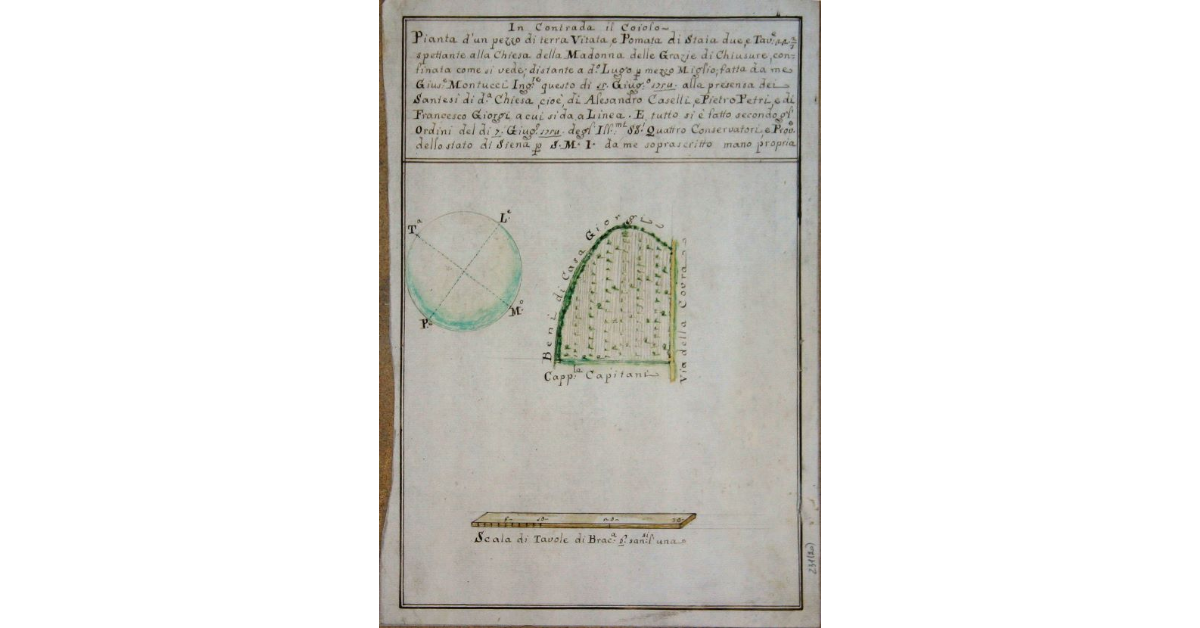 In Contrada il Coiolo
Pianta d'un pezzo di terra Vitata, e Pomata di Staia due, e Tav.e
spettante alla Chiesa della Madonna delle Grazie di Chiusure, con-
finata come si vede; distante a d.o Lugo p mezzo Miglio; fatta da me
Gius.e Montucci Ing.re questo di Giug.o alla presenza dei
Santesi di d.a Chiesa, cioè, di Alesandro Caselli, e Pietro Petri, e di
Francesco Giorgi, a cui si da, a Linea. E, tutto si è fatto secondo gl'
Ordini del di Giug.o degl' Ill.mi SS.i Quattro Conservatori, e Prov.
dello stato di Siena p S. M. I. da me soprascritto mano propria
T.a
L.e
P.e
M.o
Beni di Casa Giorgi
Via della Covra
Capp.la Capitani
Scala di Tavole di Brac.a una
231(20)